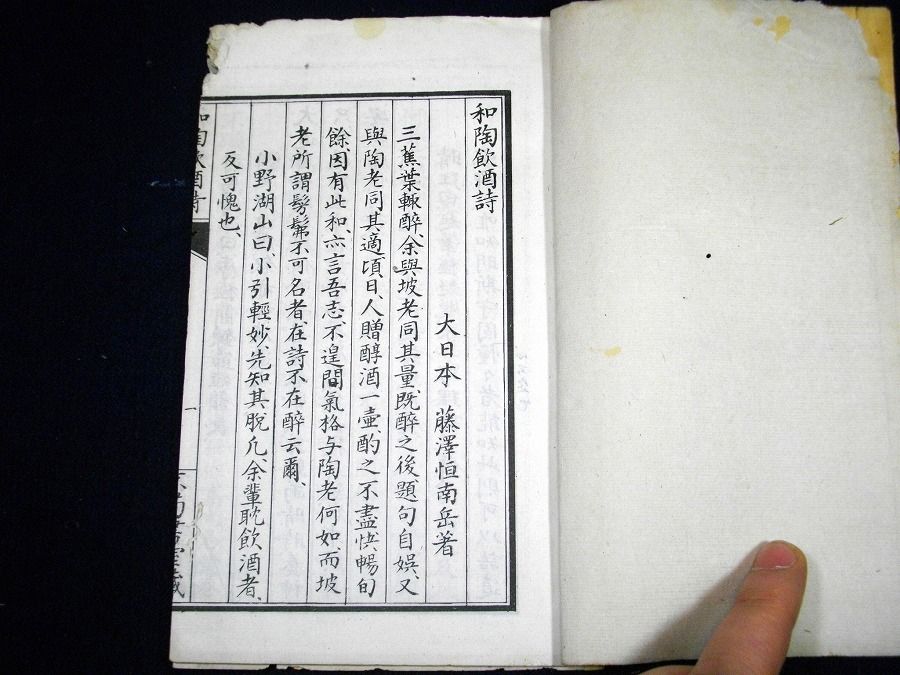 和陶飲酒詩
大日本 藤澤恒南岳著
三蕉葉輙醉、余與坡老同其量、既醉之後題句自娯、又
與陶老同其適、頃日、人贈醇酒一壷、酌之不盡、快暢旬
餘、因有此和、亦言吾志、不遑間氣格与陶老何如、而坡
老所謂髣髴不可名者、在詩不在醉云爾、
小野湖山曰、小引輕妙、先知其脫凡、余輩耽飲酒者、
反可愧也、
和陶飲酒詩
一